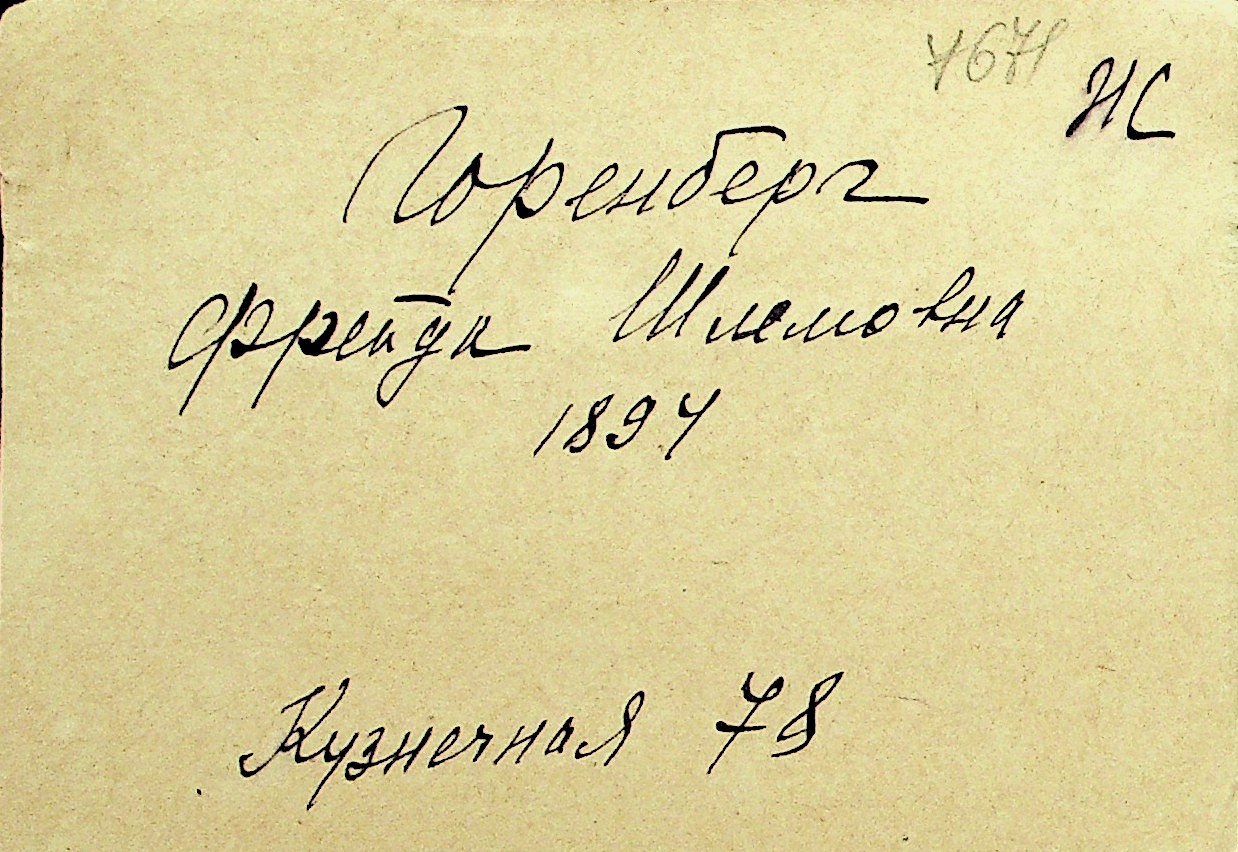 7671
НС
Горенберг
Фрейда Шлемовна
1894
Кузнечная 78